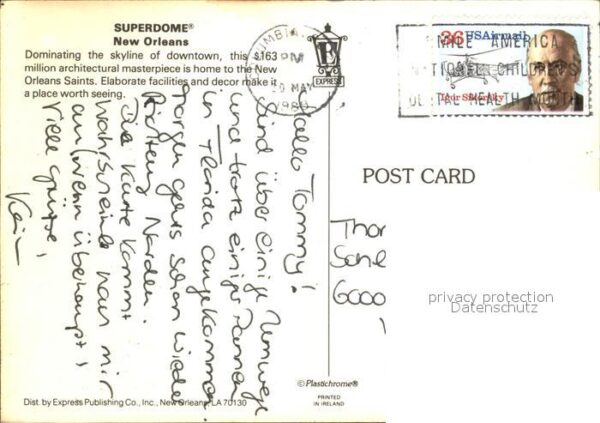 SUPERDOME®
New Orleans
Dominating the skyline of downtown, this $163
million architectural masterpiece is home to the New
Orleans Saints. Elaborate facilities and decor make it
a place worth seeing.
Hallo Tommy!
Sind über einige Umwege
und trotz einiger Pannen
in Florida angekommen
morgen gehts schon wieder
Richtung Norden.
Die Karte kommt
wahrscheinl. nach mir
an (wenn überhaupt)
Viele Grüße,
E
EXPRESS
PM
MAY
36 USAirmail
Igor Sikorsky
SMILE AMERICA
NATIONAL CHILDREN'S
DENTAL HEALTH MONTH
POST CARD
privacy protection
Datenschutz
©Plastichrome®
PRINTED
IN IRELAND
Dist. by Express Publishing Co., Inc., New Orleans, LA 70130